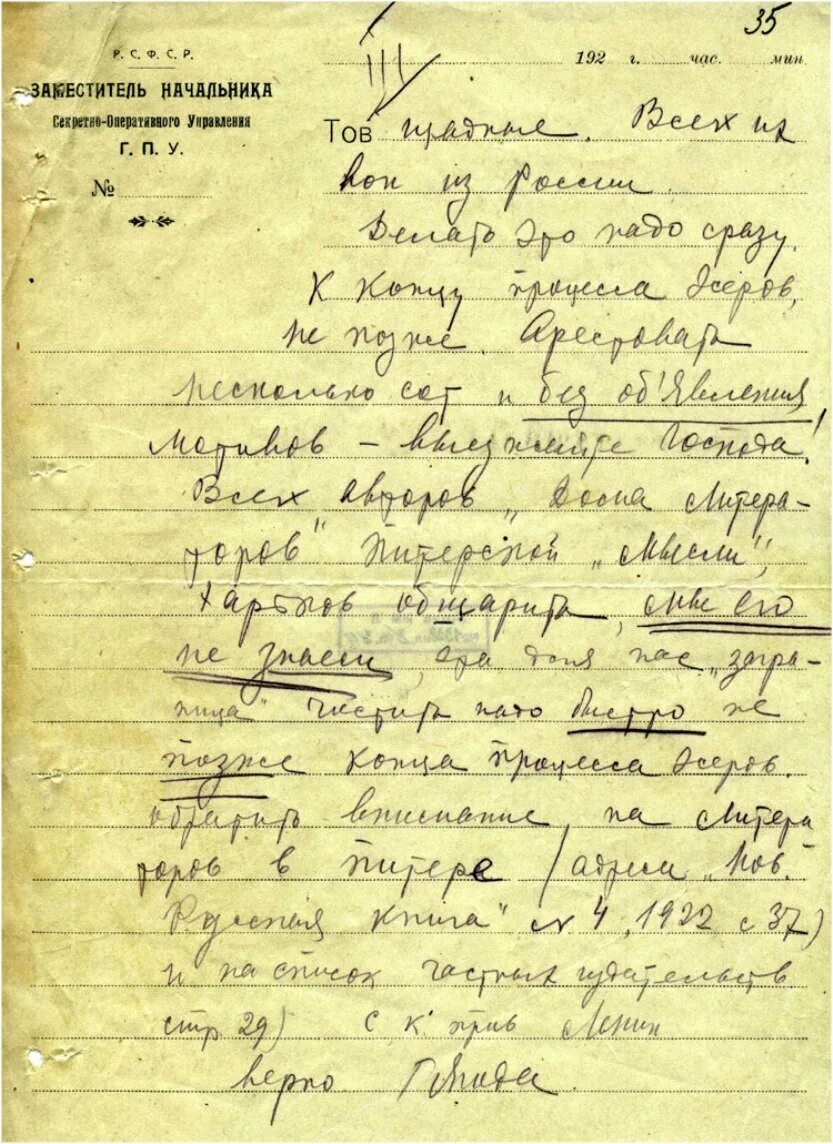 35
Р. С. Ф. С. Р.
ЗАМЕСТИТЕЛЬ НАЧАЛЬНИКА
Секретно-Оперативного Управления
Г. П. У.
№
192 г. час. мин.
III
Тов щадные. Всех их
вон из России.
Делать это надо сразу.
К концу процесса Эсеров,
не позже. Арестовать
несколько сот и без об'явления
мотивов – выезжайте господа!
Всех авторов „Дома Литера-
торов" Питерской „Мысли",
Харьков обшарить, мы его
не знаем, эта для нас „загра-
ница" Чистить надо быстро не
позже конца процесса Эсеров.
обратить внимание на Литера
торов в Питере /адреса „Нов.
Русская книга" № 4, 1922 с 37)
и на список частных издательств
стр. 29) С к. прив Ленин
верно Г Ягода